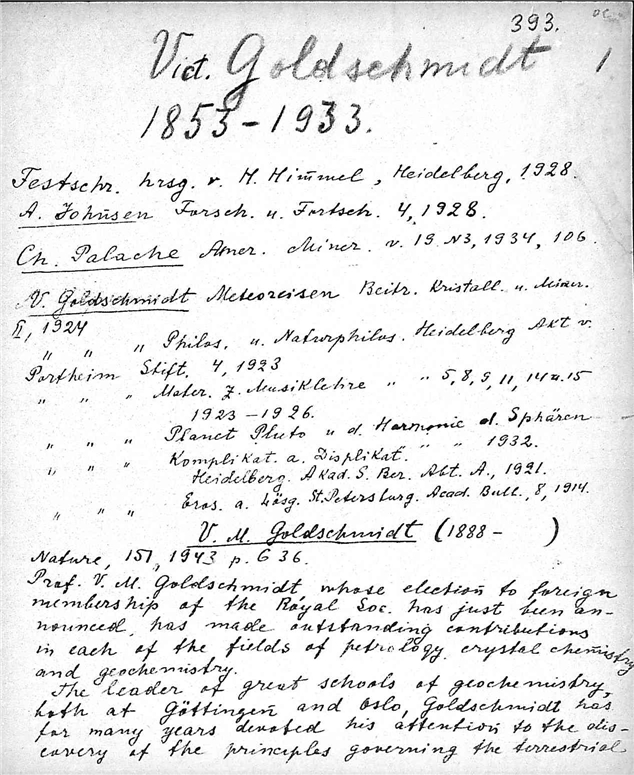 393.
1
Vict. Goldschmidt
1853-1933.
Festschr. hrsg. v. H. Himmel, Heidelberg, 1928.
A. Johnsen Forsch. u. Fortsch. 4, 1928.
Ch. Palache Amer. Miner. v. 19 N3, 1934, 106.
V. Goldschmidt Meteoreisen Beitr. Kristall. u. Miner.
II, 1924
" " " Philos. u. Naturphilos. Heidelberg Akt v.
Portheim Stift. 4, 1923
" " " Mater. z. Musiklehre " " 5, 8, 9, 11, 14 u. 15
1923-1926.
" " " Planet Pluto u d. Harmonie d. Sphären
" " 1932.
" " " Komplikat. a. Displikat.
Heidelberg. Akad. S. Ber. Abt. A., 1921.
" " " Eros. a. Lösg. St. Petersburg. Acad. Bull., 8, 1914.
V. M. Goldschmidt (1888- )
Nature, 151, 1943 p. 636.
Prof. V. M. Goldschmidt, whose election to foreign
membership of the Royal Soc. has just been an-
nounced, has made outstanding contributions
in each of the fields of petrology, crystal chemistry
and geochemistry.
The leader of great schools of geochemistry,
both at Göttingen and Oslo, Goldschmidt has
for many years devoted his attention to the dis-
covery of the principles governing the terrestrial